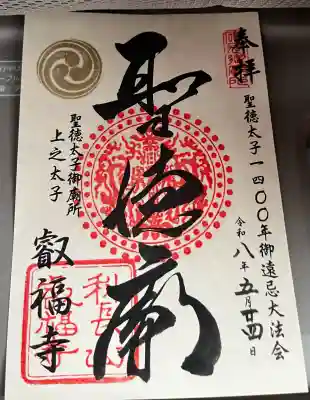 奉拝
聖徳太子一四〇〇年御遠忌大法会
令和八年五月廿四日
聖徳廟
聖徳太子御廟所
上之太子
叡福寺